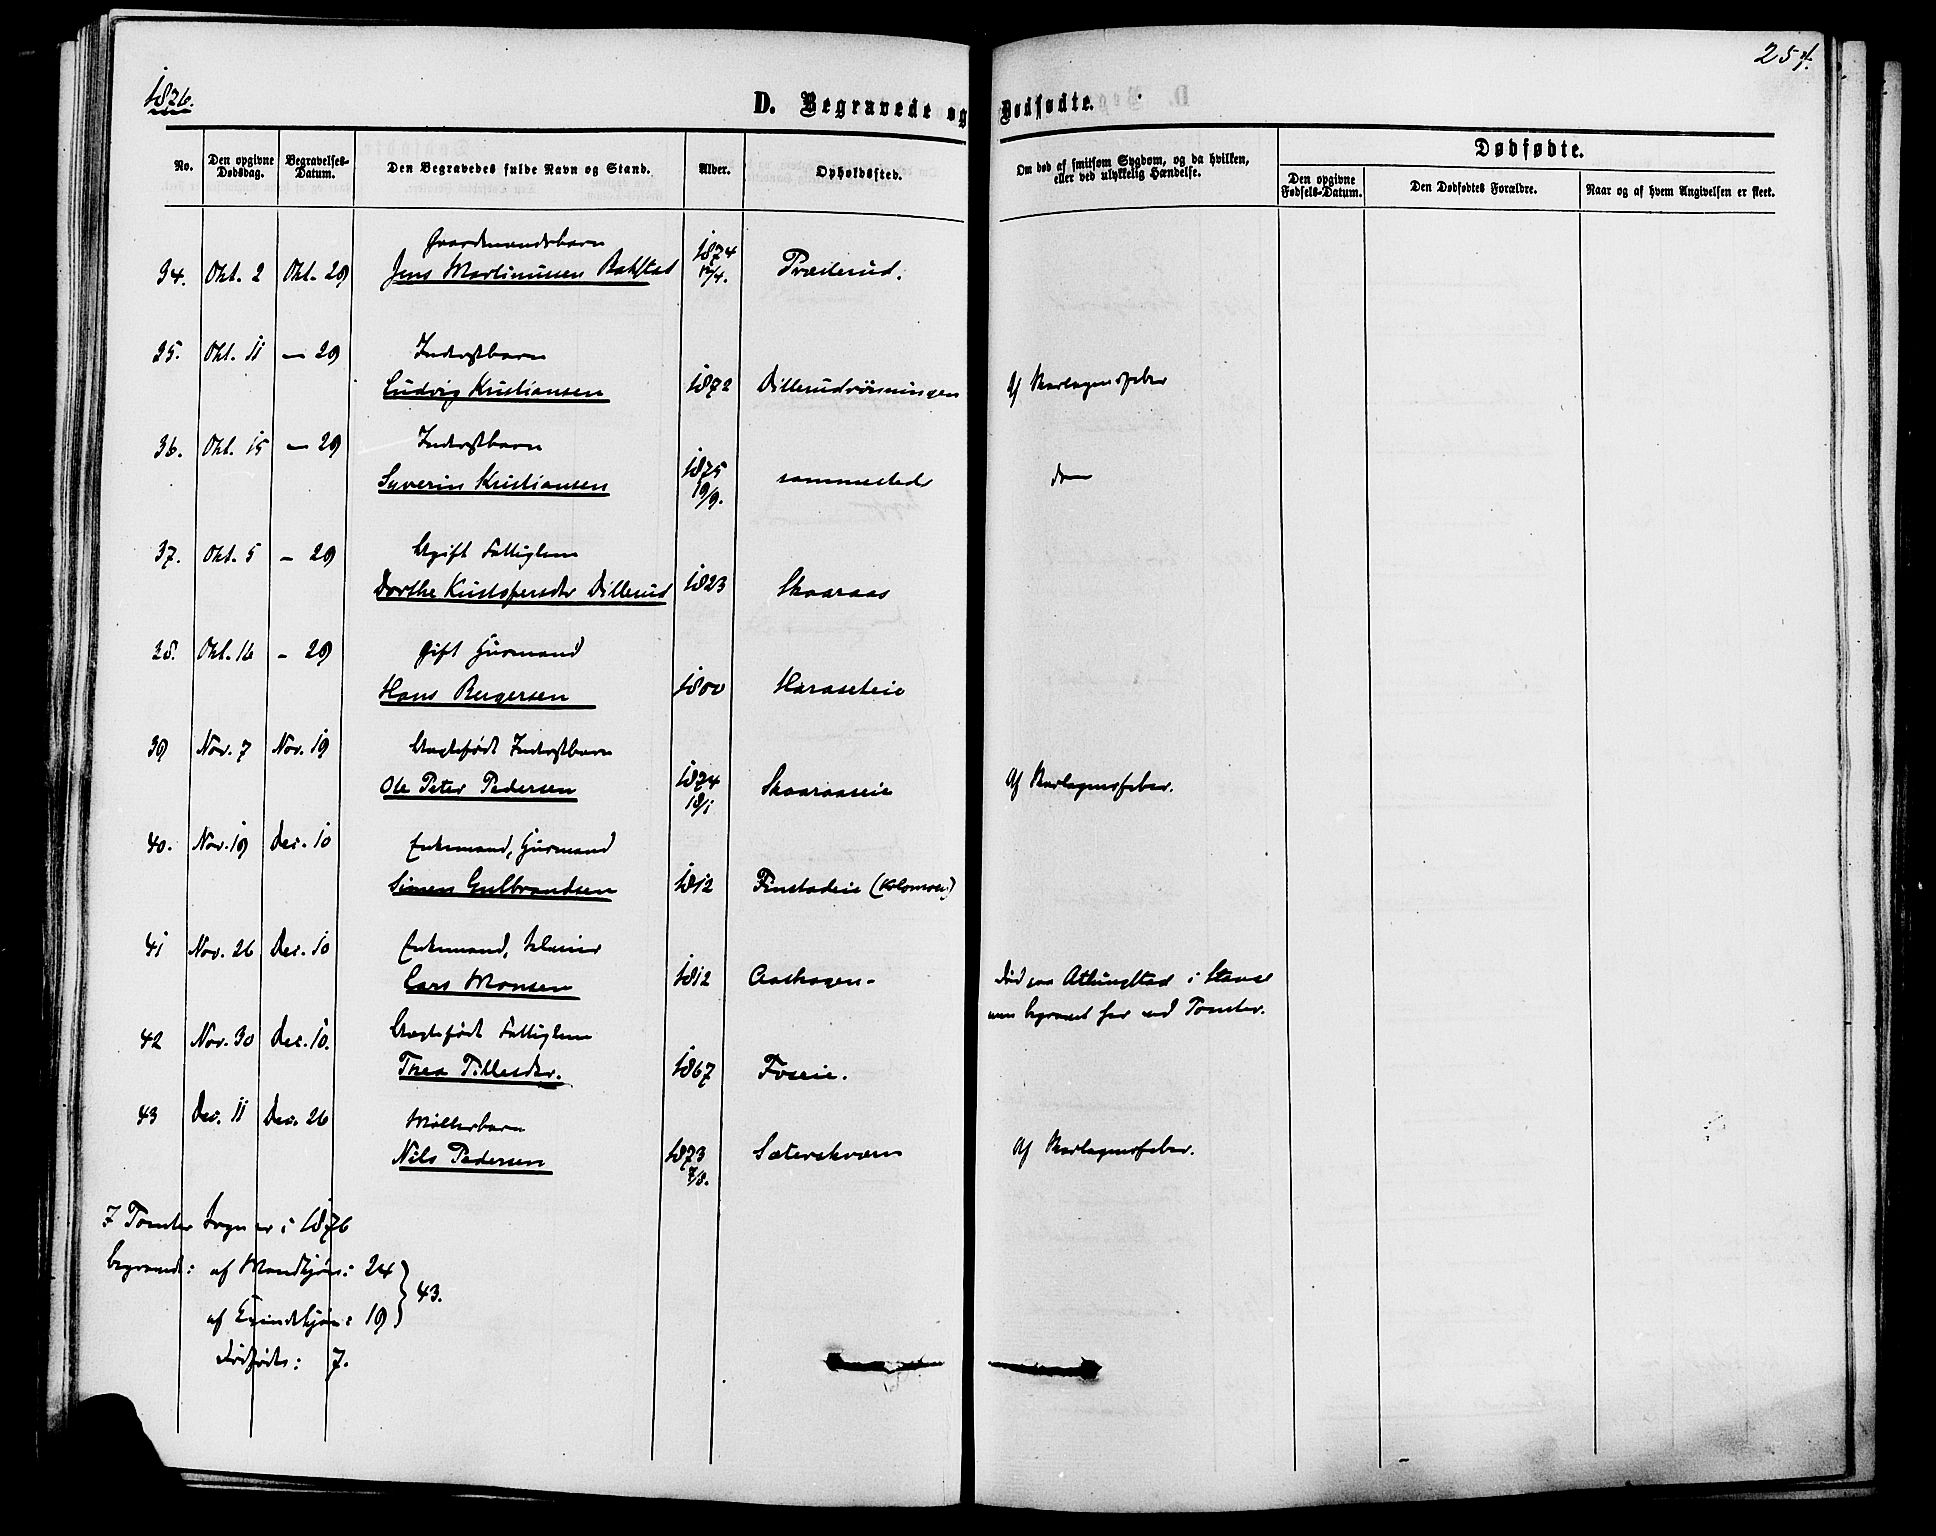 1876.
257.
D. Begravede og Dødfødte.
No.
Den opgivne Dødsdag.
Begravelses-Datum.
Den Begravedes fulde Navn og Stand.
Alder.
Opholdssted.
Om død af smitsom Sygdom, og da hvilken, eller ved ulykkelig Hændelse.
Dødfødte.
Den opgivne Fødsels-Datum.
Den Dødfødtes Forældre.
Naar og af hvem Angivelsen er skeet.
Gaardmandsbarn
34. Okt. 2 Okt. 29 Jens Martinussen Bakstad 1874 Præsterud.
Inderstbarn
35. Okt. 11 — 29 Ludvig Kristiansen 1872 Dillerudrösningen Af Skarlagensfeber
Inderstbarn
36. Okt. 15 — 29 Syverin Kristiansen 1875 19/9. sammesteds do
Ugift Fattiglem
37. Okt. 5 — 29 Dorthe Kristofersdtr Dillerud 1823 Skaaraas
Gift Husmand
38. Okt. 16 — 29 Hans Bergersen 1800 Haraseteie
Uægtefødt Inderstbarn
39 Nov. 7 Nov. 19 Ole Peter Pedersen 1874 18/1 Skaaraaseie Af Skarlagensfeber.
Enkemand, Husmand
40. Nov. 19 Dec. 10 Simen Gulbrandsen 1812 Finstadeie
Enkemand,
41 Nov. 26 Dec. 10 Lars Monsen 1812 Aashagen Død paa Athungstad i Stange
men begravet her ved Tomter.
Uægtefødt Fattiglem
42 Nov. 30 Dec. 10. Thea Tillesdtr. 1867 Foseie.
Møllerbarn
43 Dec. 11 Dec. 26 Nils Pedersen 1873 7/8. Sæterskværn Af Skarlagensfeber.
I Tomter Sogn er i 1876
begravet: af Mandkjøn: 24
af Kvindekjøn: 19 } 43.
Dødfødte: 7.